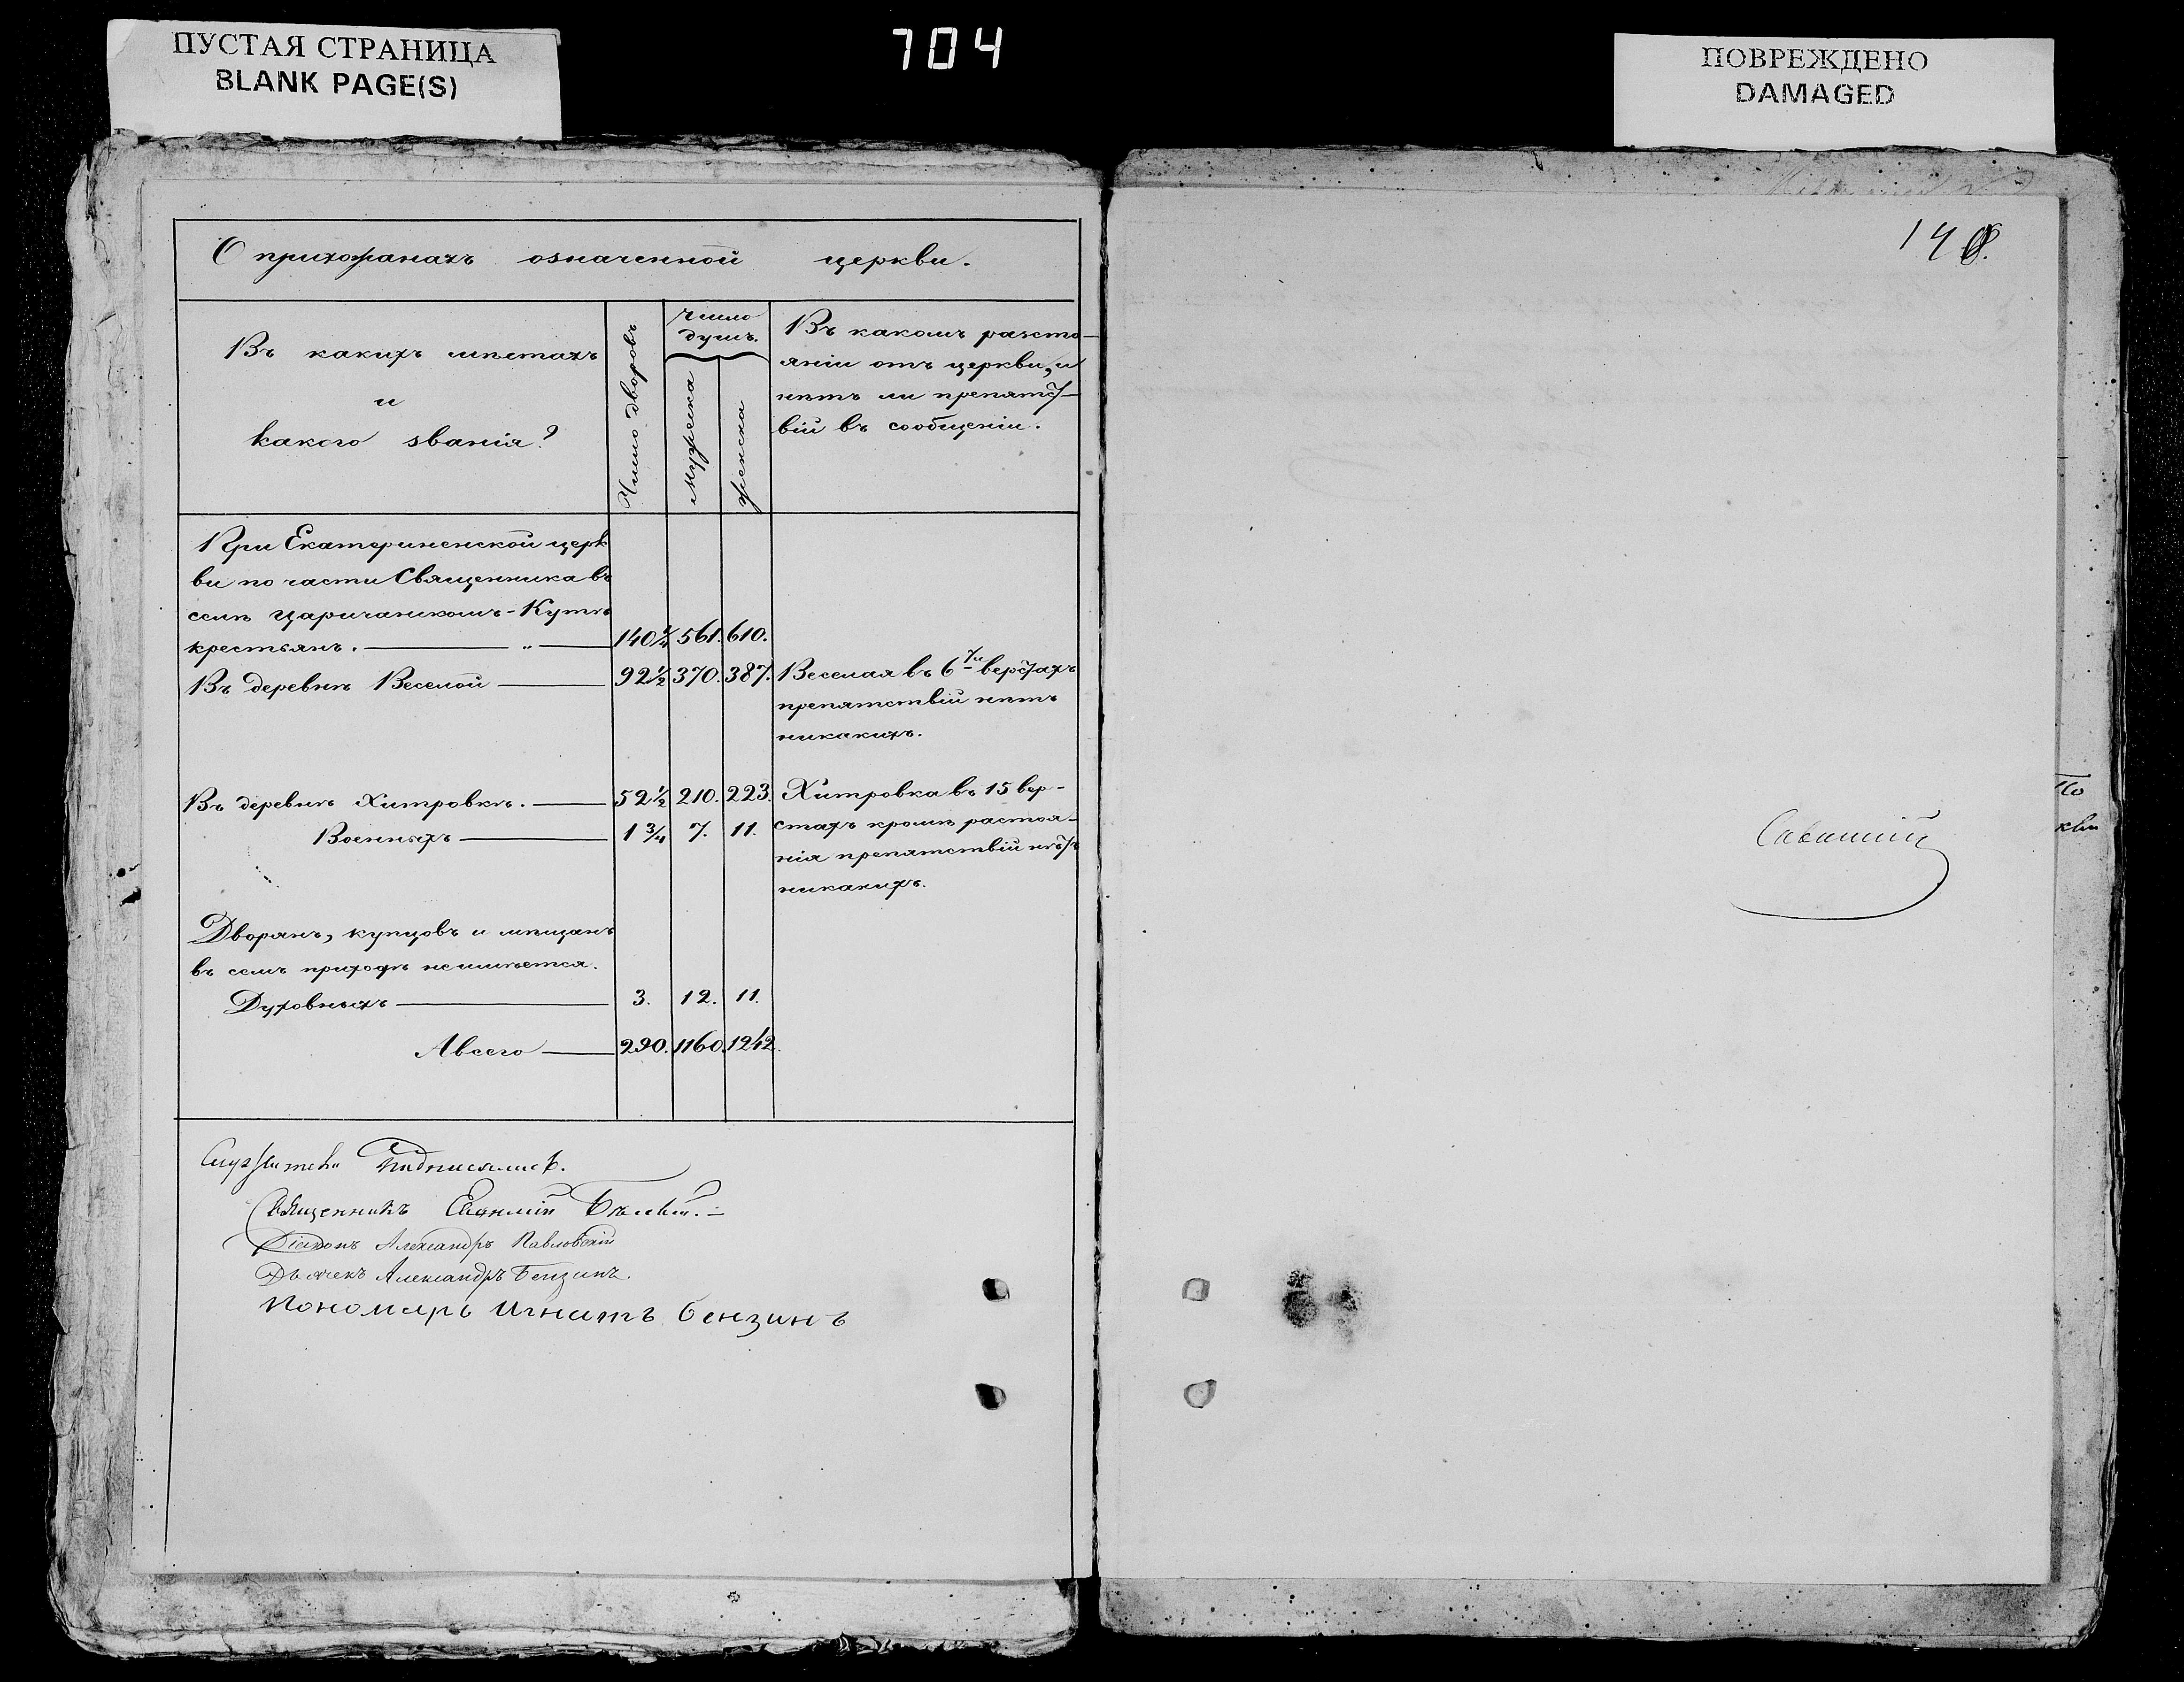 ПУСТАЯ СТРАНИЦА
BLANK PAGE(S)
704
ПОВРЕЖДЕНО
DAMAGED
О прихожанахъ означенной церкви.
Въ какихъ мѣстахъ
и
какого званія?
Число дворовъ
Число
душъ.
Мужеска
Женска
Въ какомъ разсто-
яніи отъ церкви, и
нѣтъ ли препятст-
вій въ сообщеніи.
При Екатериненской церк
ви по части Священника въ
селѣ Царичанскомъ-Кутѣ
крестьянъ. 140 1/4 561. 610.
Въ деревнѣ Веселой 92 1/2 370. 387.
Веселая въ 6ти верстахъ
препятствій нѣтъ
никакихъ.
Въ деревнѣ Хитровкѣ. 52 1/2 210. 223.
Военныхъ 1 3/4 7. 11.
Хитровка въ 15 вер-
стахъ кромѣ растоя-
нія препятствій нѣтъ
никакихъ.
Дворянъ, купцовъ и мѣщанъ
въ семъ приходѣ не имѣется.
Духовныхъ 3. 12. 11.
А всего 290. 1160. 1242.
Служители подписались.
Священникъ
Діаконъ Александръ Павловскій
Дьячекъ Александръ Бензинъ.
Пономарь Игнатъ Бензинъ
По
кви